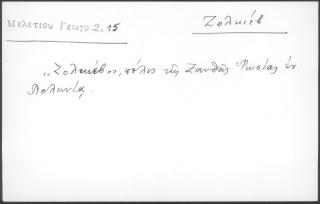 Μελετίου Γεωγρ. 2, 15
Ζολκιέβ
"Ζολκιέβ", πόλις τῆς Ξανθῆς Ῥωσίας ἐν
Πολωνίᾳ.